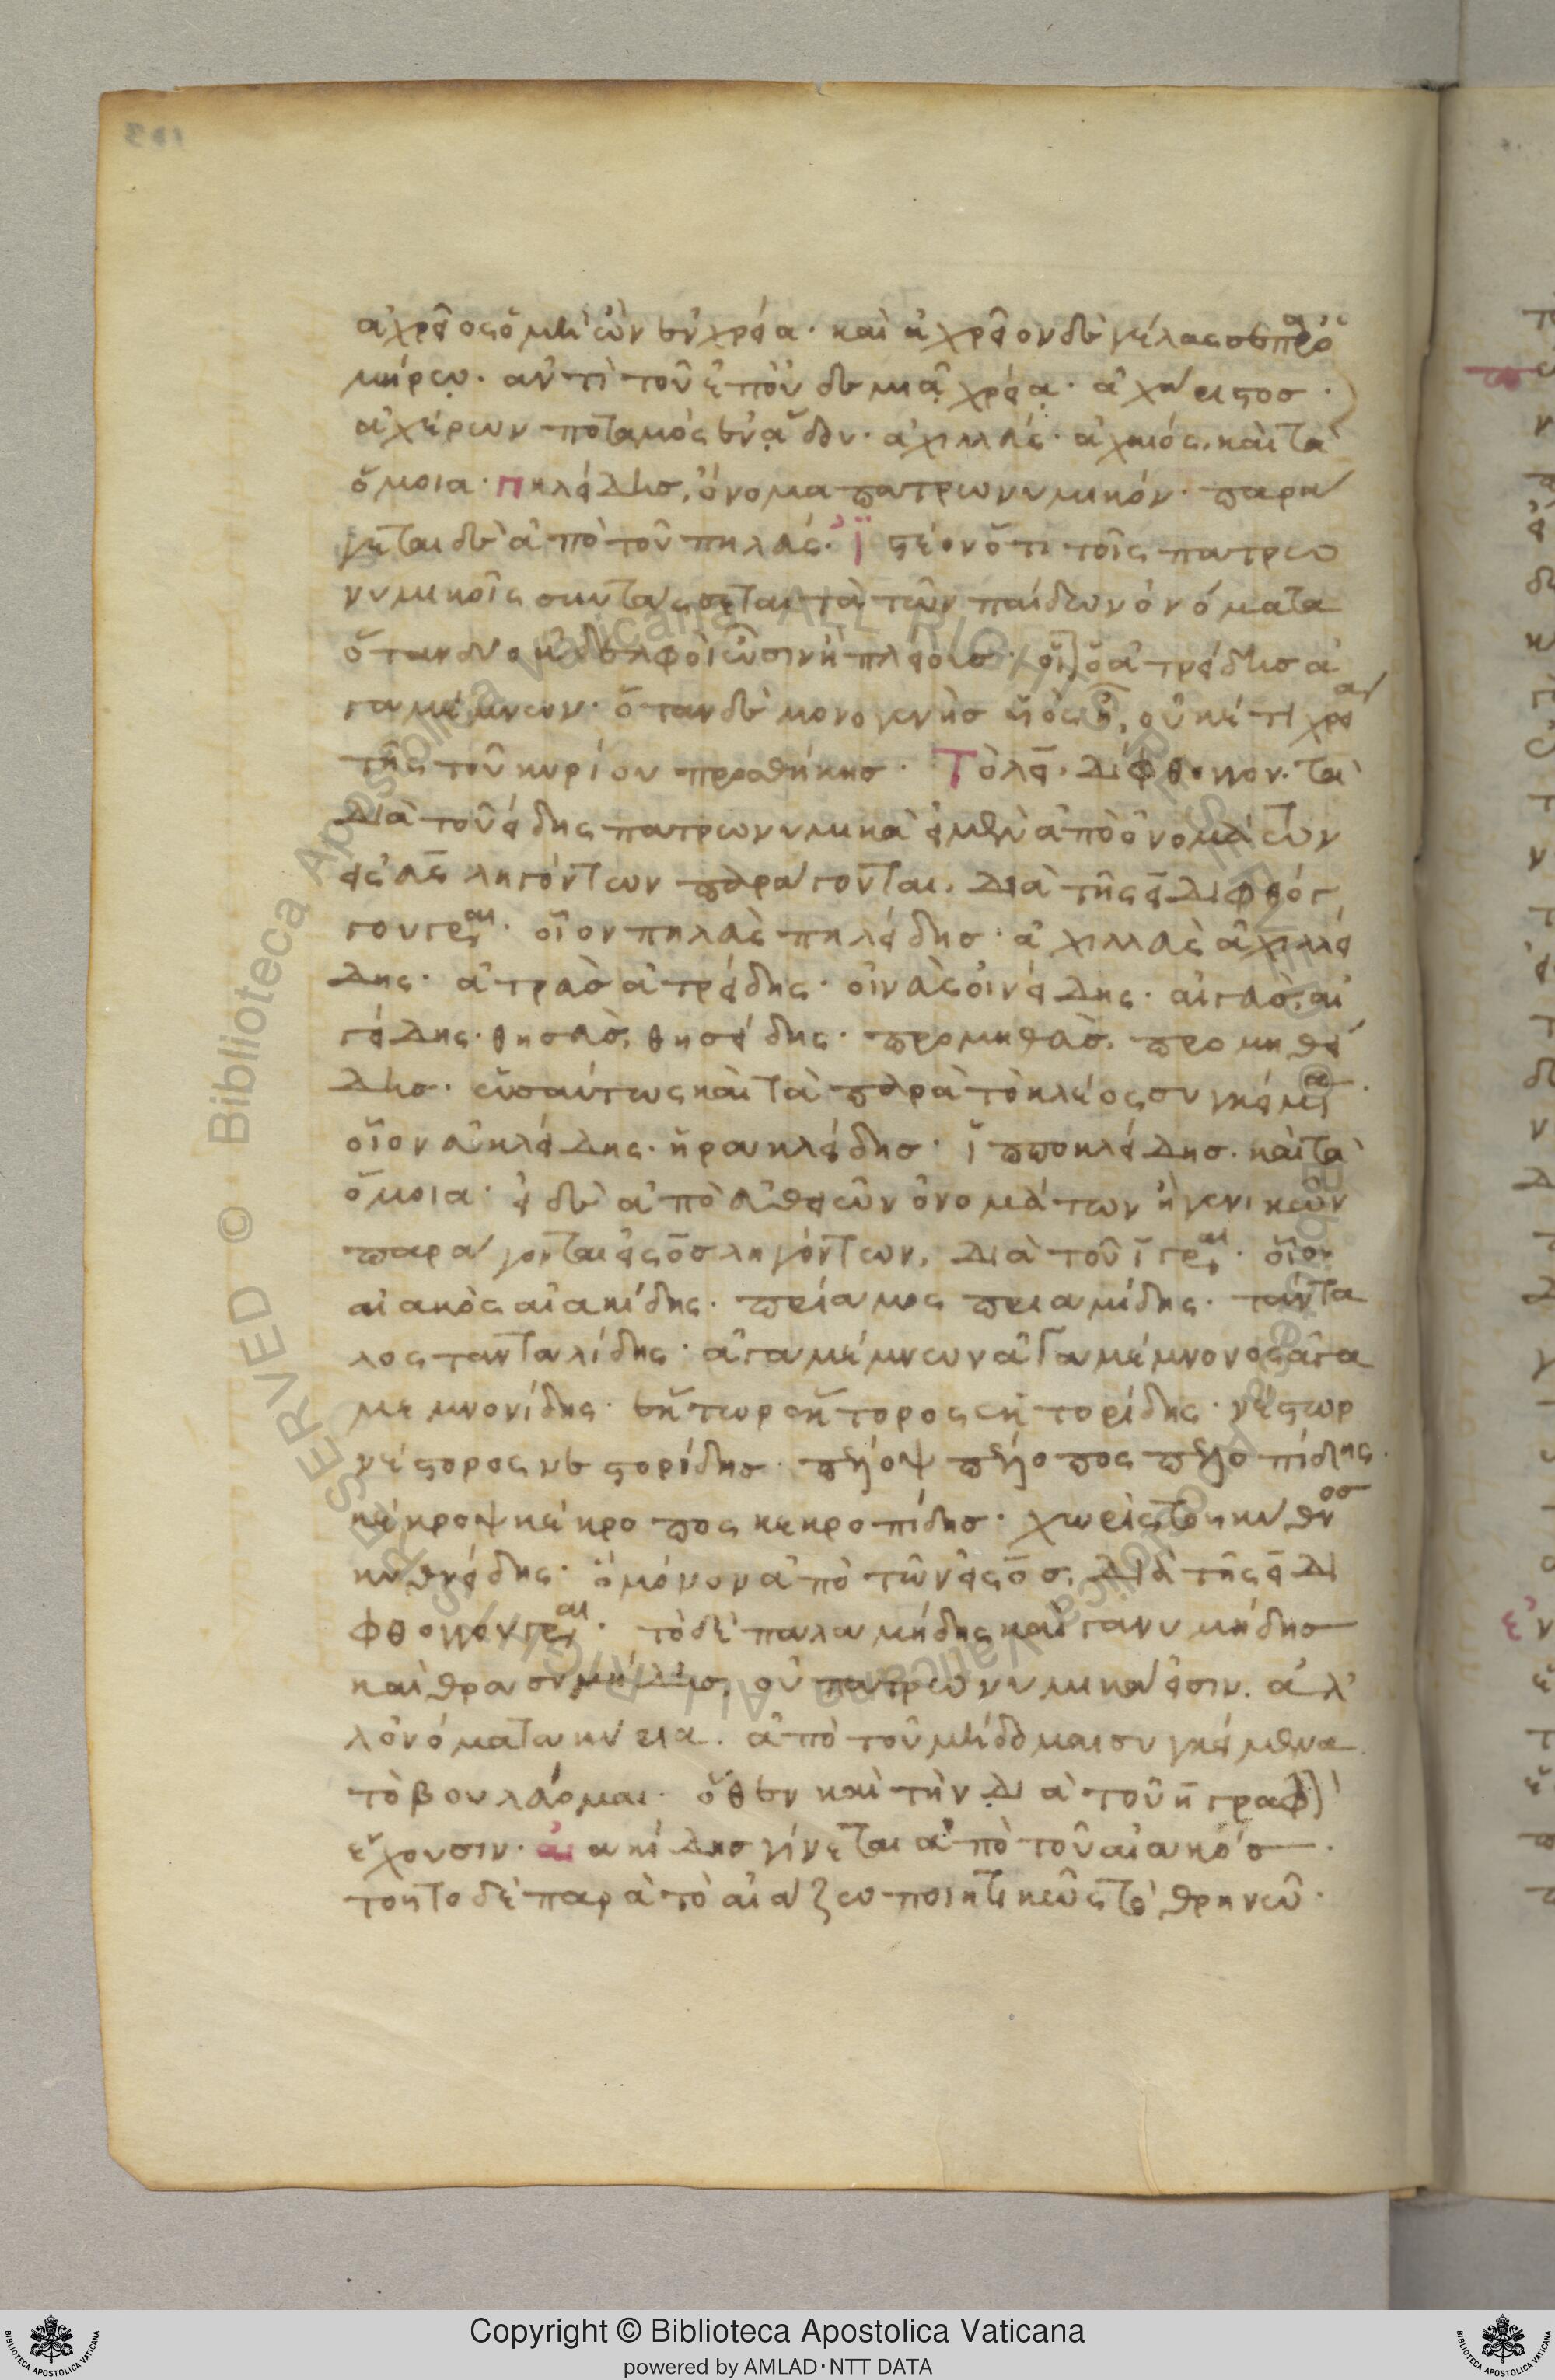 ἀχρεῖος ὁ μὴ ὢν ἐν χρεία· καὶ ἀχρεῖον δὲ γέλασσε παρ ὁ
μήρῳ· ἀντὶ τοῦ ἐπ οὐδεμιᾷ χρείᾳ·
ἀχέρων ποταμὸς ἐν ᾅδην· ἀχιλλεύς· ἀχαιός· καὶ τὰ
ὅμοια· πηλείδησ, ὄνομα πατρωνυμικόν· παρά
γεται δὲ ἀπὸ τοῦ πηλεύς· ἰστέον ὅτι τοῖς πατρω
νυμικοῖς συντάσσεται τὰ τῶν παίδων ὀνόματα
ὅταν δύο ἀδελφοὶ ὦσιν ἢ πλείονεσ· οἷον ὁ ἀτρείδησ ἀ
γαμέμνων· ὅταν δὲ μονογενὴσ υἱὸς ᾖ, οὐκέτι χρεία
τῆς τοῦ κυρίου προσθήκησ· Τὸ λει δίφθογγον· τὰ
διὰ τοῦ είδης πατρωνυμικὰ εἰ μὲν ἀπὸ ὀνομάτων
εἰς εὺς ληγόντων παράγονται, διὰ τῆς ει διφθόγ
γου γράφεται· οἷον πηλεὺς πηλείδησ· ἀχιλλεὺς ἀχιλλεί
δης· ἀτρεὺσ ἀτρείδης· οἰνεὺς οἰνείδης· αἰγεὺσ, αἰ
γείδης· θησεὺσ, θησείδης· προμηθεὺσ, προμηθεί
δησ· ὡσαύτως καὶ τὰ παρὰ τὸ κλέος συγκείμενα·
οἷον εὐκλείδης· ἡρακλείδησ· ἱπποκλείδησ· καὶ τὰ
ὅμοια· εἰ δὲ ἀπὸ εὐθειῶν ὀνομάτων ἢ γενικῶν
παράγονται εἰς ος ληγόντων, διὰ τοῦ ι γράφεται· οἷον
αἰακὸς αἰακίδης· πρίαμος πριαμίδης· τάντα
λος τανταλίδης· ἀγαμέμνων ἀγαμέμνονος ἀγα
μεμνονίδης· νέστωρ
νέστορος νεστορίδησ· πέλοψ πέλοπος πελοπίδης·
κέκροψ κέκροπος κεκροπίδησ· χωρὶς τοῦ κύθνοσ
κυθνείδης· ὃ μόνον ἀπὸ τῶν εἰς οσ, διὰ τῆς ει δι
φθόγγου γράφεται· τὸ δὲ παλαμήδης καὶ γανυμήδησ
καὶ θρασυμήδησ, οὐ πατρωνυμικά εἰσιν· ἀλ
λ ὀνόματα κύρια· ἀπὸ τοῦ μήδομαι συγκείμενα
τὸ βουλεύομαι· ὅθεν καὶ τὴν διὰ τοῦ η γραφὴν
ἔχουσιν· αἰακίδησ γίνεται ἀπὸ τοῦ αἰακόσ·
τοῦτο δὲ παρὰ τὸ αἰάζω ποιητικῶς τὸ θρηνῶ·
Copyright © Biblioteca Apostolica Vaticana
powered by AMLAD·NTT DATA